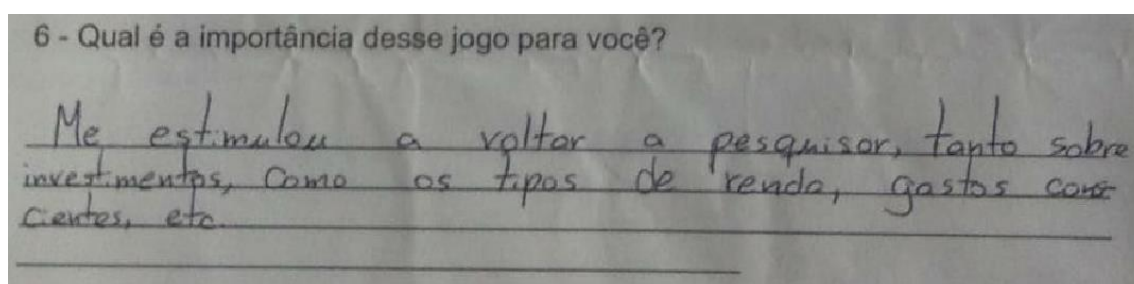 6 - Qual é a importância desse jogo para você?
Me estimulou a voltar a pesquisar, tanto sobre
investimentos, como os tipos de renda, gastos cons
cientes, etc.